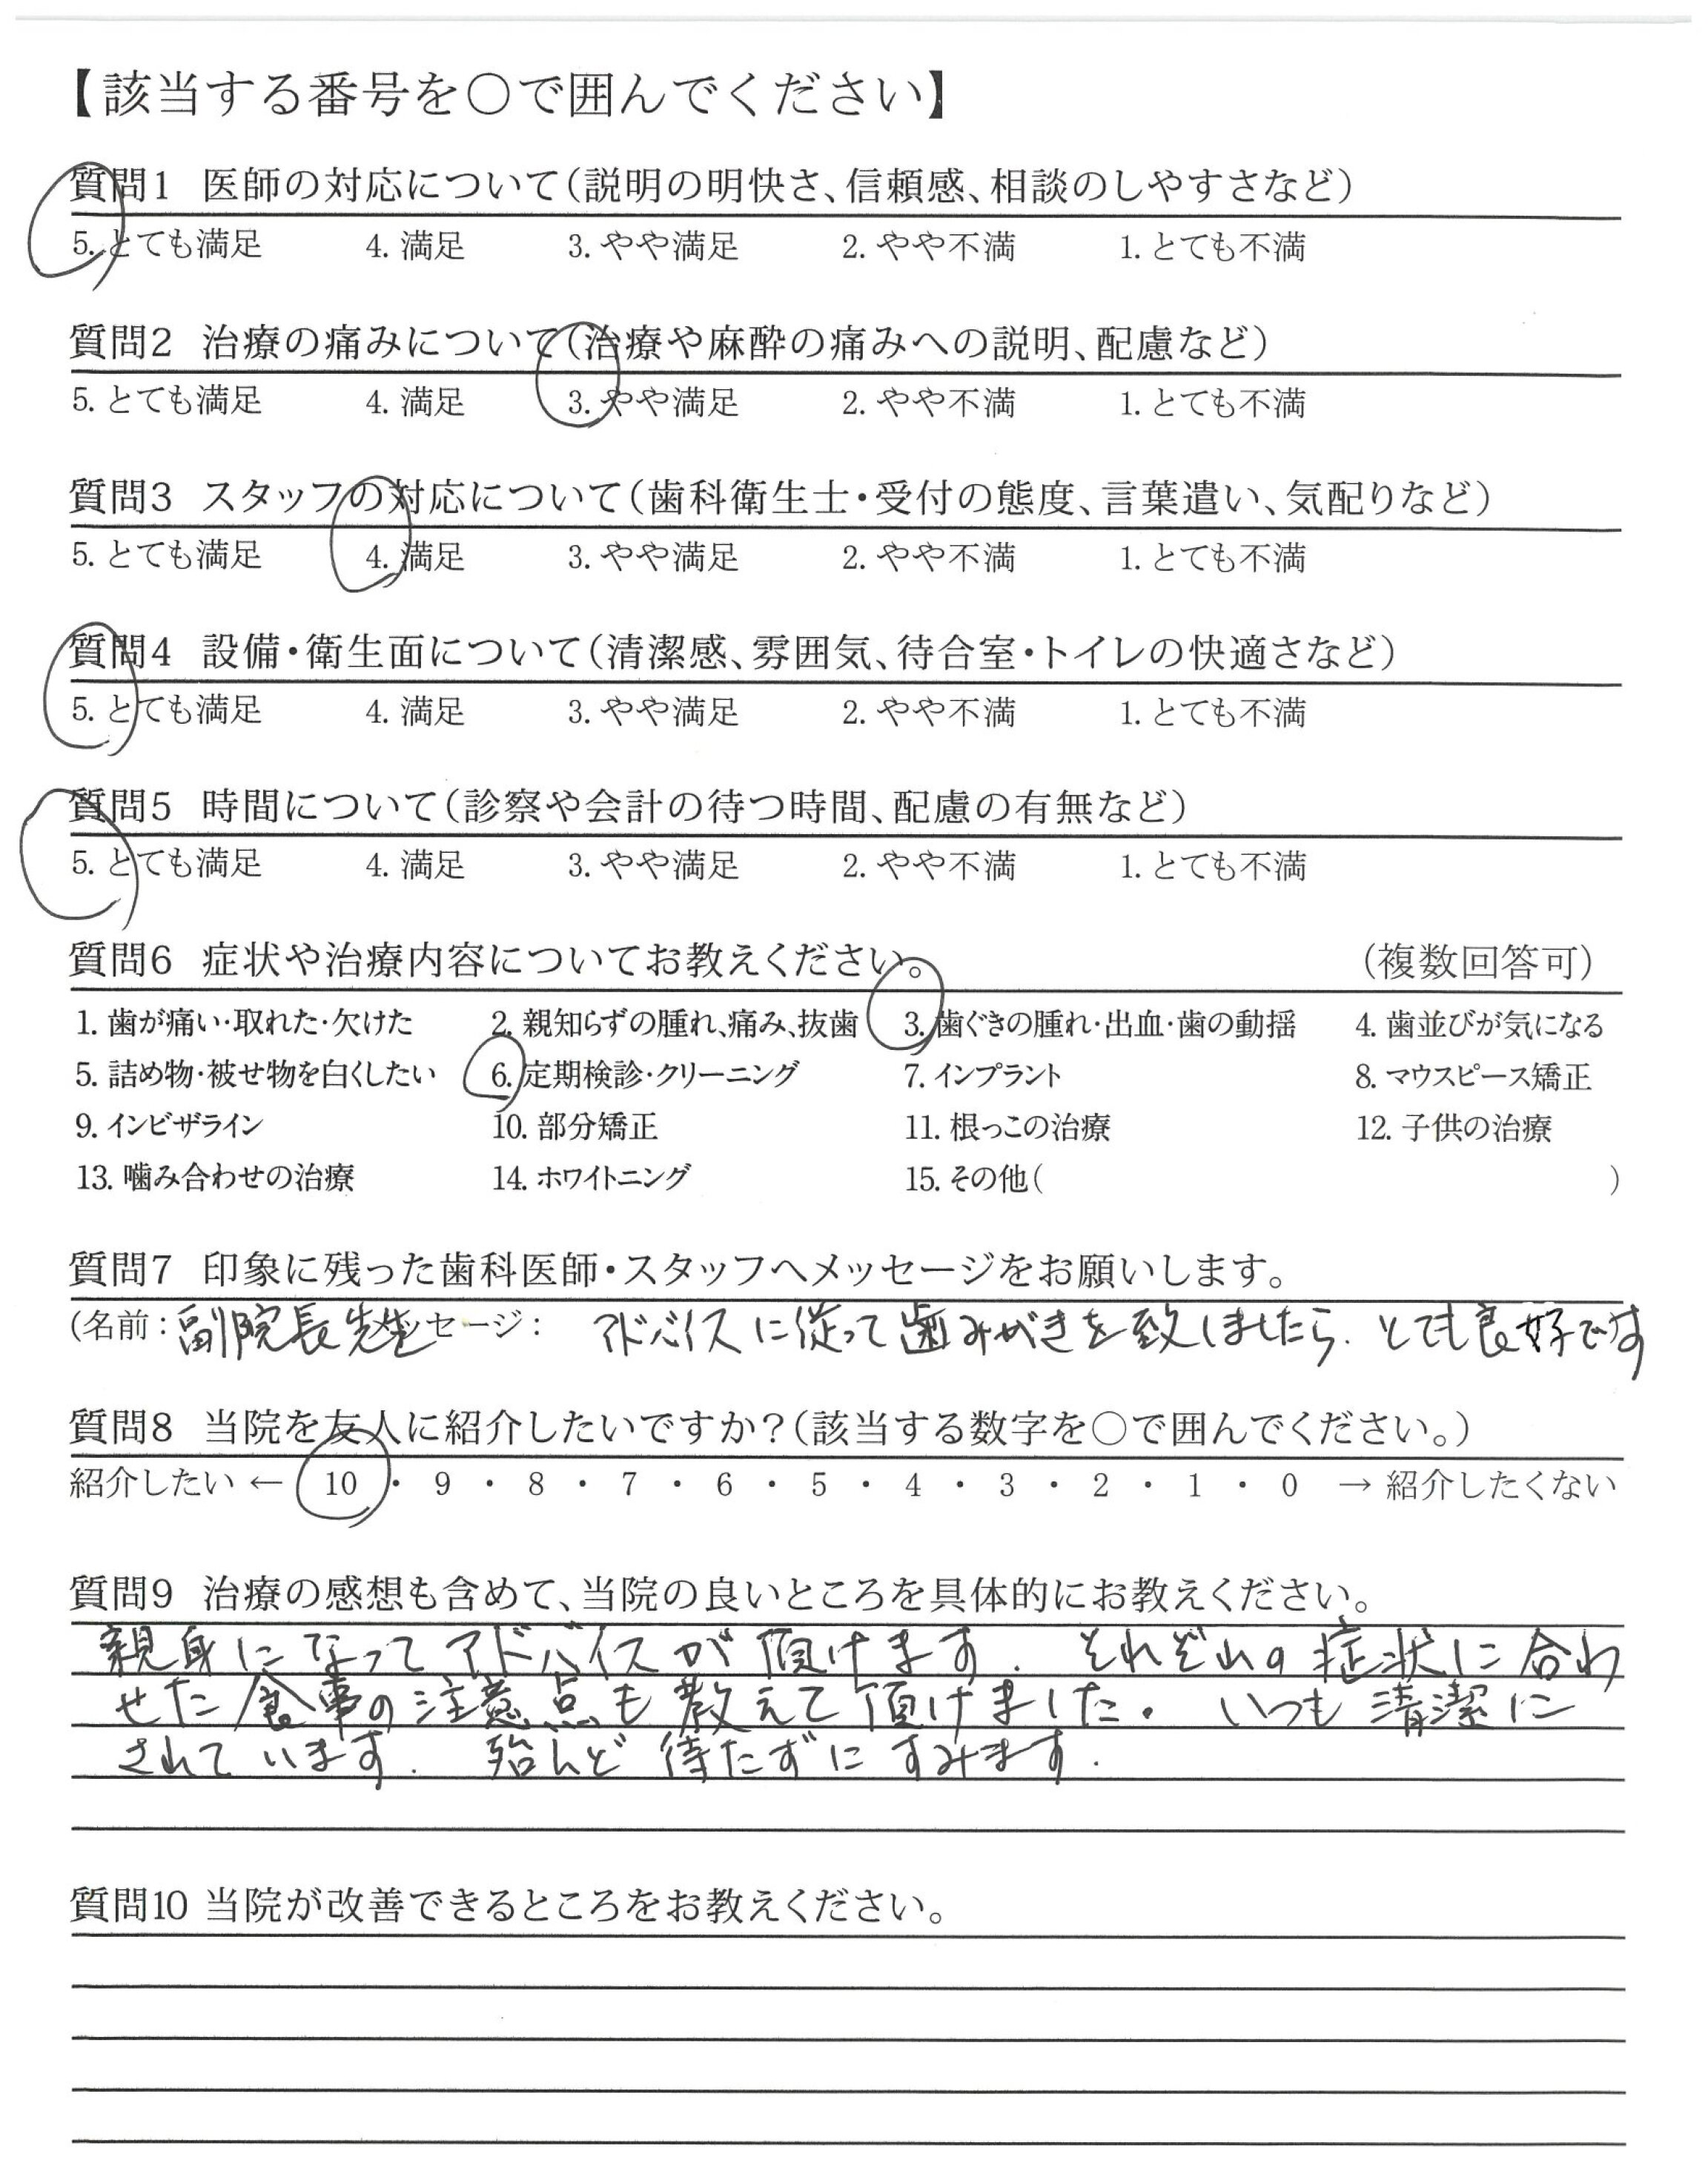 【該当する番号を○で囲んでください】
質問1 医師の対応について(説明の明快さ、信頼感、相談のしやすさなど)
5. とても満足 4. 満足 3. やや満足 2. やや不満 1. とても不満
質問2 治療の痛みについて(治療や麻酔の痛みへの説明、配慮など)
5. とても満足 4. 満足 3. やや満足 2. やや不満 1. とても不満
質問3 スタッフの対応について(歯科衛生士・受付の態度、言葉遣い、気配りなど)
5. とても満足 4. 満足 3. やや満足 2. やや不満 1. とても不満
質問4 設備・衛生面について(清潔感、雰囲気、待合室・トイレの快適さなど)
5. とても満足 4. 満足 3. やや満足 2. やや不満 1. とても不満
質問5 時間について(診察や会計の待つ時間、配慮の有無など)
5. とても満足 4. 満足 3. やや満足 2. やや不満 1. とても不満
質問6 症状や治療内容についてお教えください。 (複数回答可)
1. 歯が痛い・取れた・欠けた 2. 親知らずの腫れ、痛み、抜歯 3. 歯ぐきの腫れ・出血・歯の動揺 4. 歯並びが気になる
5. 詰め物・被せ物を白くしたい 6. 定期検診・クリーニング 7. インプラント 8. マウスピース矯正
9. インビザライン 10. 部分矯正 11. 根っこの治療 12. 子供の治療
13. 噛み合わせの治療 14. ホワイトニング 15. その他( )
質問7 印象に残った歯科医師・スタッフへメッセージをお願いします。
(名前: 副院長先生 メッセージ: アドバイスに従って歯みがきを致しましたら、とても良好です
質問8 当院を友人に紹介したいですか?(該当する数字を○で囲んでください。)
紹介したい ← 10 ・ 9 ・ 8 ・ 7 ・ 6 ・ 5 ・ 4 ・ 3 ・ 2 ・ 1 ・ 0 → 紹介したくない
質問9 治療の感想も含めて、当院の良いところを具体的にお教えください。
親身になってアドバイスが頂けます。それぞれの症状に合わ
せた食事の注意点も教えて頂けました。いつも清潔に
されています。殆んど待たずにすみます。
質問10 当院が改善できるところをお教えください。